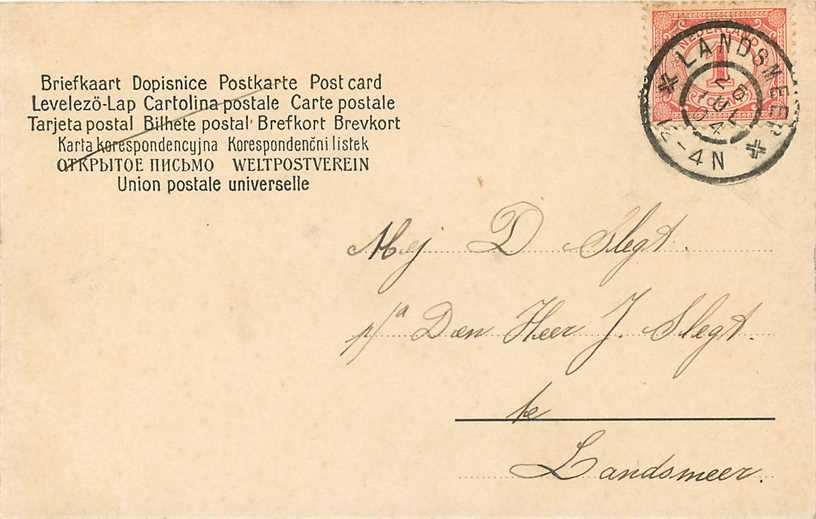 Briefkaart Dopisnice Postkarte Post card
Levelezö-Lap Cartolina postale Carte postale
Tarjeta postal Bilhete postal Brefkort Brevkort
Karta korespondencyjna Korespondenčni listek
ОТКРЫТОЕ ПИСЬМО WELTPOSTVEREIN
Union postale universelle
NEDERLAND
1
LANDSMEER
28 JUL 04
-4N
Mej D Slegt.
p/a Den Heer J. Slegt.
te
Landsmeer.